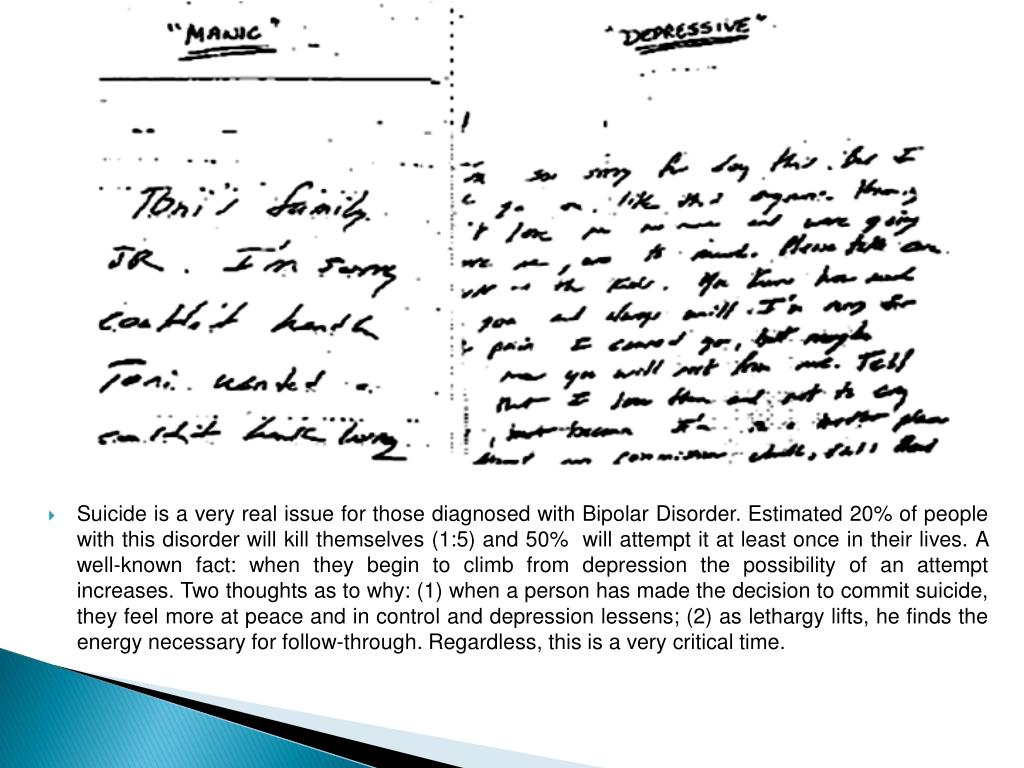 "MANIC"
"DEPRESSIVE"
Toni's family
JR. I'm sorry
couldn't handle
Toni. wanted a
couldn't handle living
so sorry for doing this. But I
go on. like this anymore.
't love me no more and were going
me, to much. Please take care
the kids. You know how much
you and always will. I'm sorry for
pain I caused you, but maybe
now you will not from me. Tell
that I love them and not to cry
, but because I'm in a better place
Suicide is a very real issue for those diagnosed with Bipolar Disorder. Estimated 20% of people
with this disorder will kill themselves (1:5) and 50% will attempt it at least once in their lives. A
well-known fact: when they begin to climb from depression the possibility of an attempt
increases. Two thoughts as to why: (1) when a person has made the decision to commit suicide,
they feel more at peace and in control and depression lessens; (2) as lethargy lifts, he finds the
energy necessary for follow-through. Regardless, this is a very critical time.